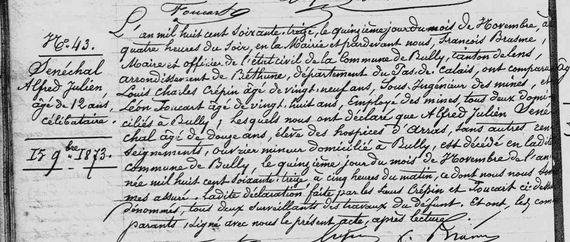 Foucart
N°. 43.
Senéchal
Alfred Julien,
âgé de 12 ans,
célibataire.
15 9bre 1873.
L'an mil huit cent soixante-treize, le quinzième jour du mois de Novembre, à
quatre heures du soir, en la Mairie et pardevant nous, François Brasme,
Maire et officier de l'état civil de la Commune de Bully, canton de Lens,
arrondissement de Béthune, département du Pas-de-Calais, ont comparu
Louis Charles Crépin âgé de vingt-neuf ans, Sous Ingénieur des mines, et
Léon Foucart âgé de vingt-huit ans, Employé des mines, tous deux domi-
ciliés à Bully; Lesquels nous ont déclaré que Alfred Julien Séné-
chal âgé de douze ans, élève des hospices d'Arras, sans autres ren-
seignements, ouvrier mineur domicilié à Bully, est décédé en ladite
commune de Bully, le quinzième jour du mois de Novembre de l'an-
née mil huit cent soixante-treize à cinq heures du matin, ce dont nous nous som-
mes assuré. Ladite déclaration faite par les Leurs Crépin et Foucart ci-dessus
dénommés, tous deux surveillants des travaux du défunt, Et ont, les com-
parants, signé avec nous le présent acte, après lecture.
Crépin F. Brasme